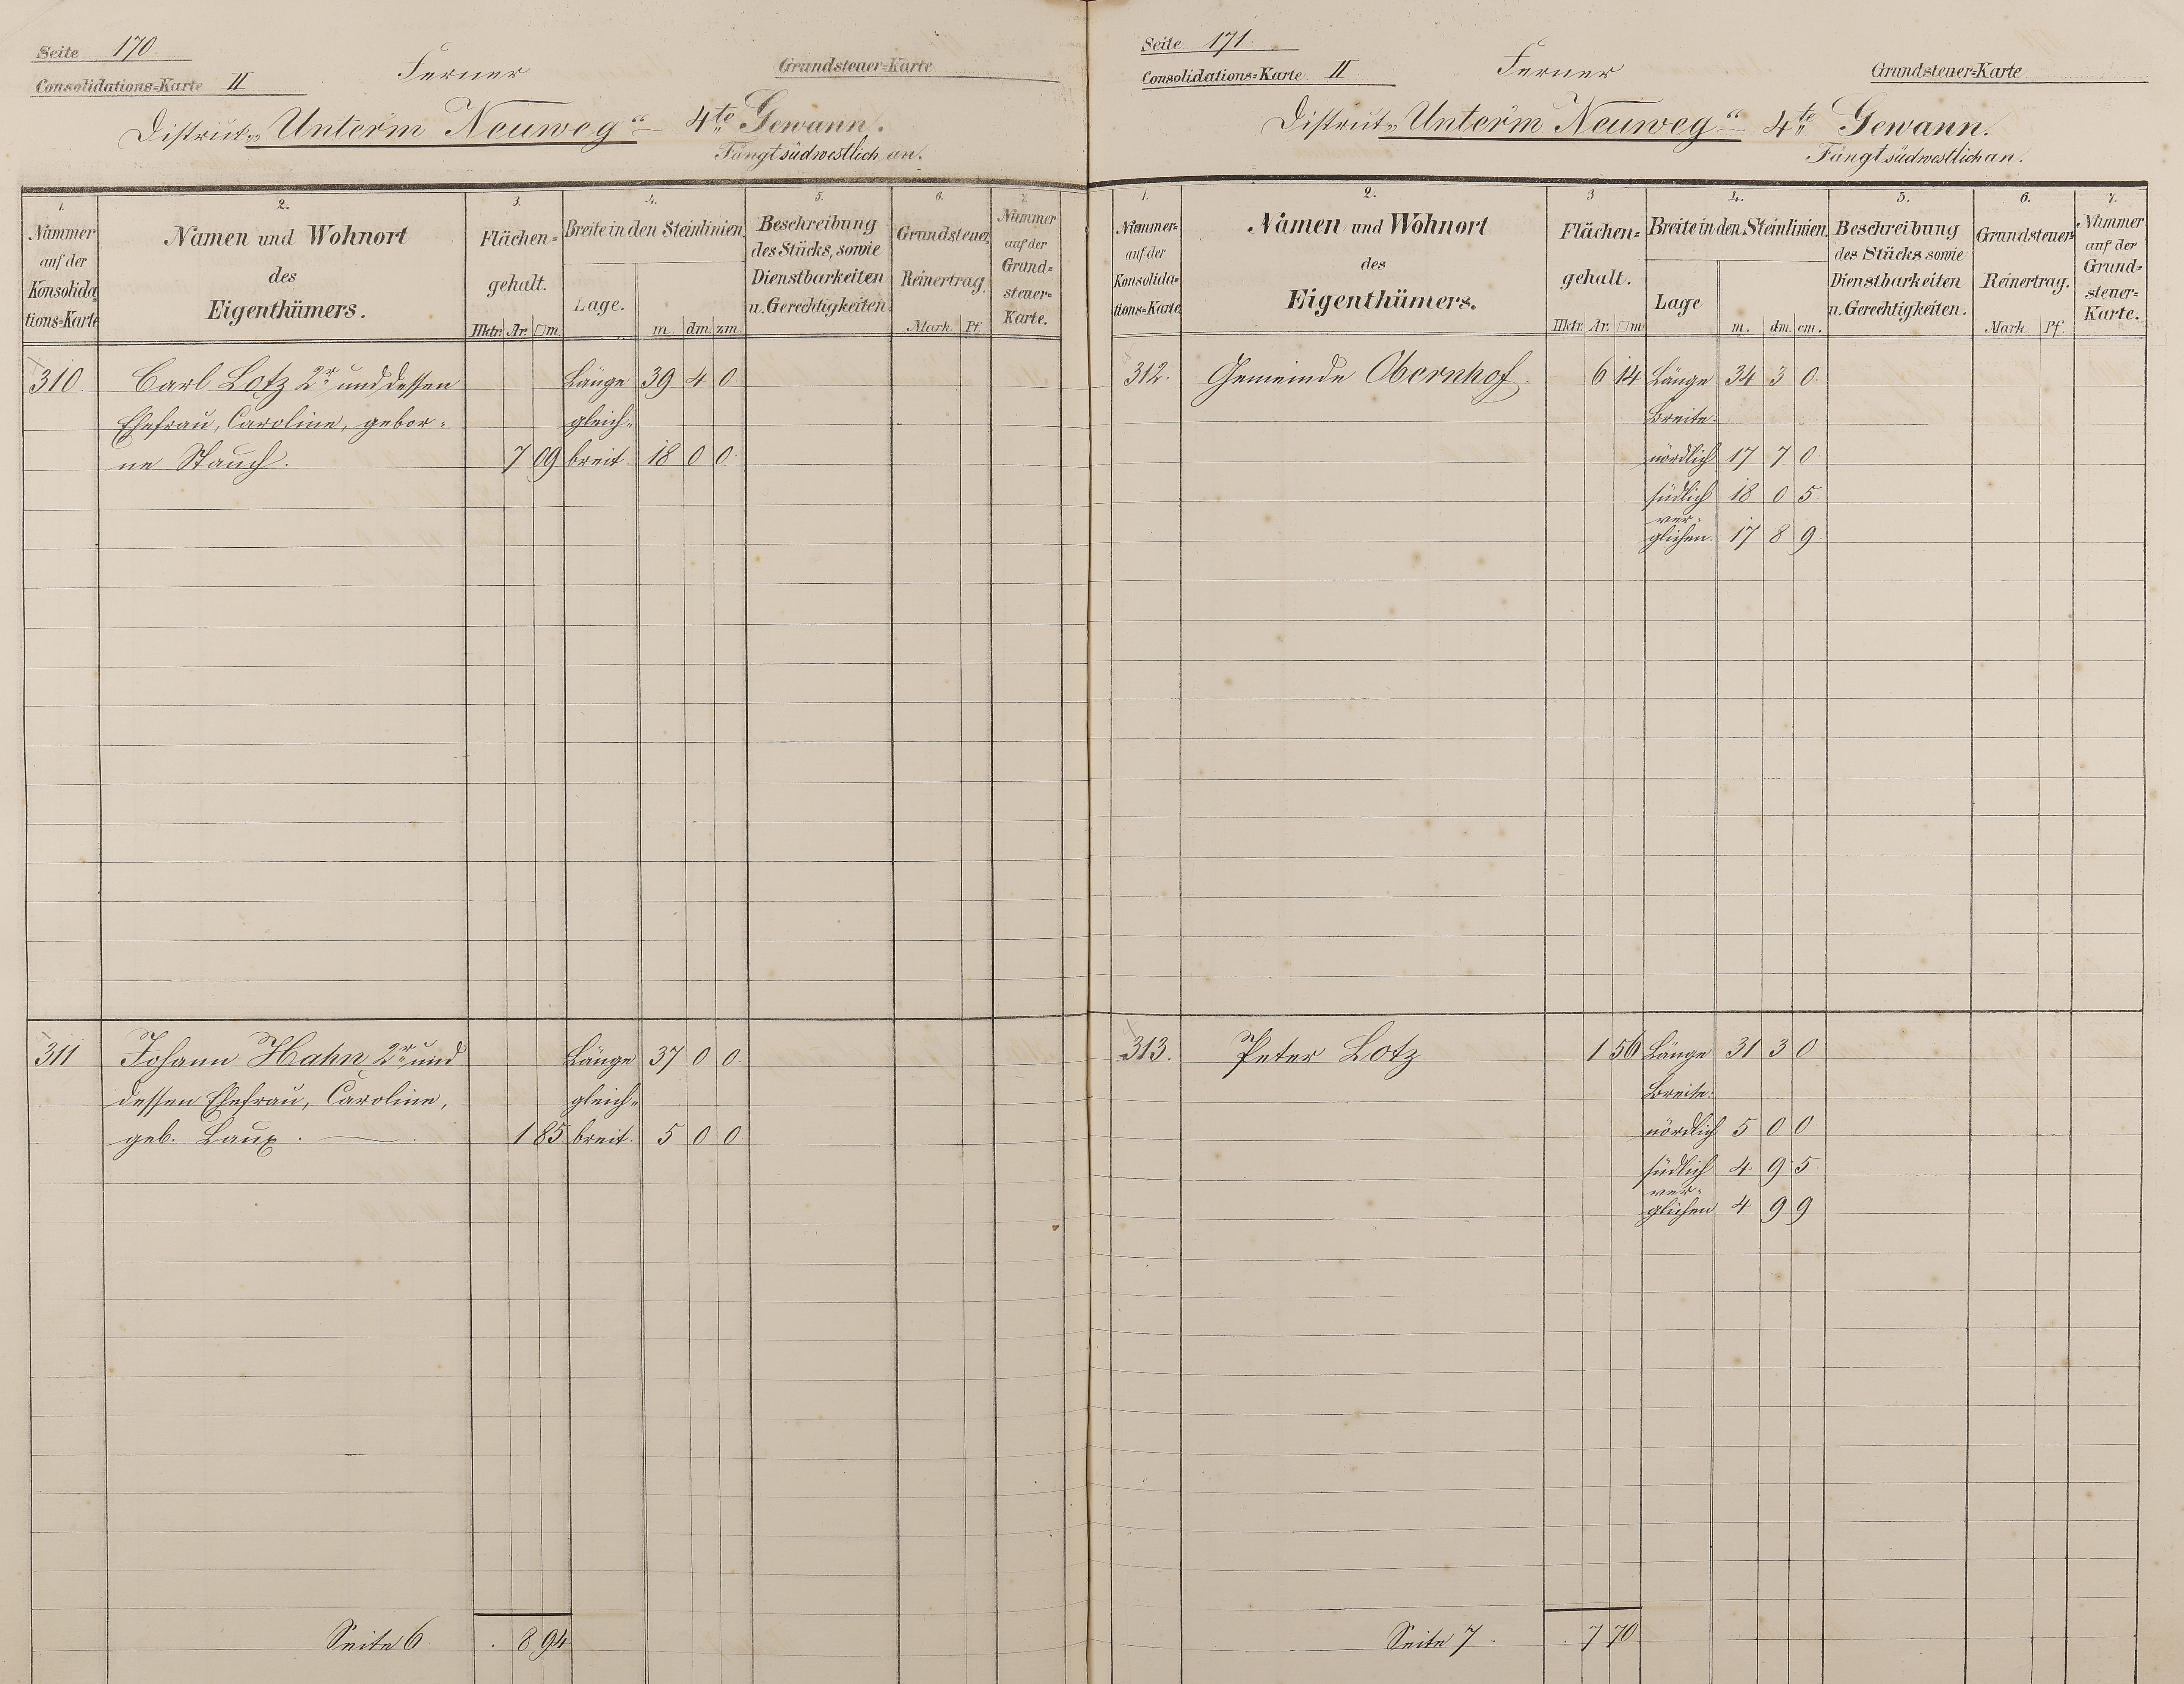 Seite 170.
Consolidations-Karte II
Ferner
Grundsteuer-Karte
District „Unterm Neuweg“ – 4te Gewann.
Fängt südwestlich an.
1. 2. 3. 4. 5. 6. 7.
Nummer auf der Konsolidations-Karte
Namen und Wohnort des Eigenthümers.
Flächen-gehalt. Hktr. Ar. □m.
Breite in den Steinlinien. Lage. m. dm. zm.
Beschreibung des Stücks, sowie Dienstbarkeiten u. Gerechtigkeiten.
Grundsteuer Reinertrag. Mark Pf.
Nummer auf der Grund-steuer-Karte.
310. Carl Lotz 2r und dessen Länge 39 4 0.
Ehefrau, Caroline, gebor- gleich-
ne Stauch. 7 09 breit 18 0 0.
311 Johann Hahn 2r und Länge 37 0 0.
dessen Ehefrau, Caroline, gleich-
geb. Laux. — 1 85 breit. 5 0 0
Seite 6. . 8 94
Seite 171.
Consolidations-Karte II
Ferner
Grundsteuer-Karte
District „Unterm Neuweg“ – 4te Gewann.
Fängt südwestlich an.
1. 2. 3 4. 5. 6. 7.
Nummer auf der Konsolida-tions-Karte
Namen und Wohnort des Eigenthümers.
Flächen-gehalt. Hktr. Ar. □m
Breite in den Steinlinien. Lage m. dm. cm.
Beschreibung des Stücks sowie Dienstbarkeiten u. Gerechtigkeiten.
Grundsteuer Reinertrag. Mark Pf.
Nummer auf der Grund-steuer-Karte.
312. Gemeinde Obernhof. 6 14 Länge 34 3 0.
Breite:
nördlich 17 7 0
südlich 18 0 5
ver-
glichen. 17 8 9
313. Peter Lotz 1 56 Länge 31 3 0
Breite:
nördlich 5 0 0
südlich 4 9 5
ver-
glichen 4 9 9
Seite 7. . 7 70